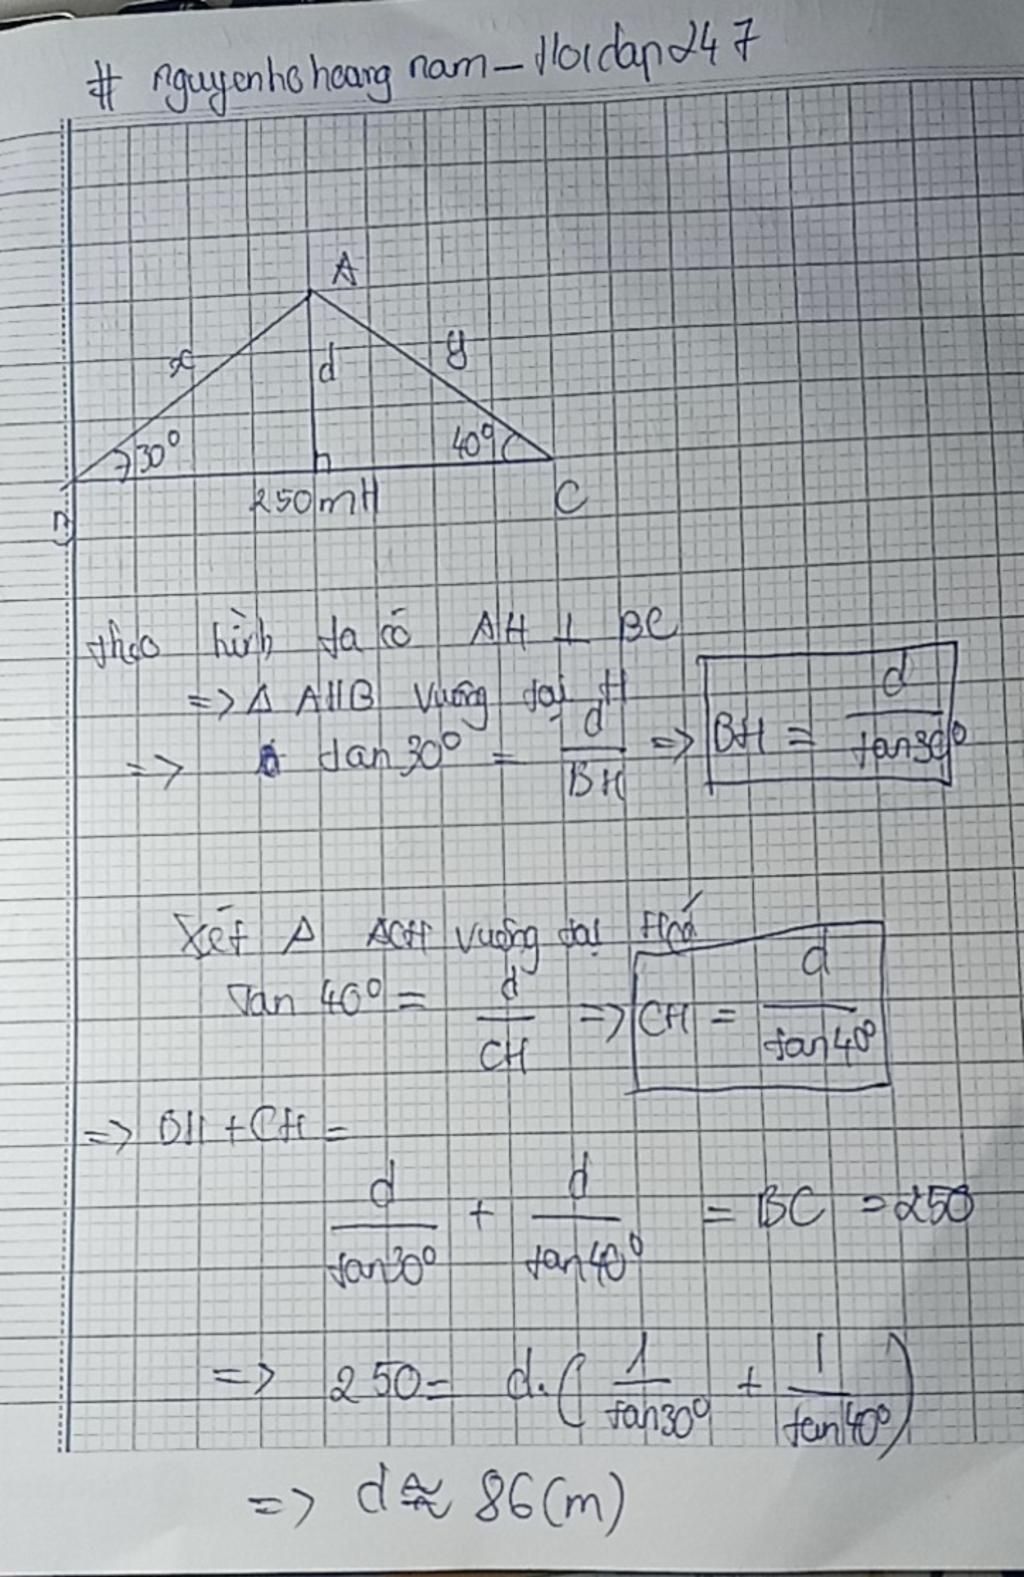 # nguyenhohoangnam - Hoidap247
A
x
d
y
30°
40°
250m H
B
C
theo hình ta có AH ⊥ BC
=> Δ AHB vuông tại H
=> tan 30° = d/BH => BH = d/tan30°
Xét Δ ACH vuông tại H có
Tan 40° = d/CH => CH = d/tan40°
=> BH + CH =
d/tan30° + d/tan40° = BC = 250
=> 250 = d.(1/tan30° + 1/tan40°)
=> d ≈ 86(m)